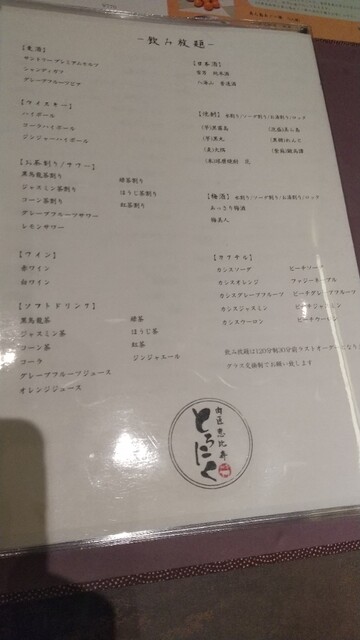 -飲み放題-
【麦酒】
サントリープレミアムモルツ
シャンディガフ
グレープフルーツビア
【ウイスキー】
ハイボール
コーラハイボール
ジンジャーハイボール
【お茶割り/サワー】
黒烏龍茶割り
緑茶割り
ジャスミン茶割り
ほうじ茶割り
コーン茶割り
紅茶割り
グレープフルーツサワー
レモンサワー
【ワイン】
赤ワイン
白ワイン
【ソフトドリンク】
黒烏龍茶
緑茶
ジャスミン茶
ほうじ茶
コーン茶
紅茶
コーラ
ジンジャエール
グレープフルーツジュース
オレンジジュース
【日本酒】
純米酒
八海山 普通酒
【焼酎】 水割り/ソーダ割り/お湯割り/ロック
(芋)黒霧島
(芋)黒丸
(麦)大隅
(黒糖)れんと
【梅酒】 水割り/ソーダ割り/お湯割り/ロック
あっさり梅酒
梅美人
【カクテル】
カシスソーダ
ピーチソーダ
カシスオレンジ
ファジーネーブル
カシスグレープフルーツ
ピーチグレープフルーツ
カシスジャスミン
ピーチジャスミン
カシスウーロン
ピーチウーロン
飲み放題は120分制30分前ラストオーダーになりま
グラス交換制でお願い致します
肉匠恵比寿
とろにく